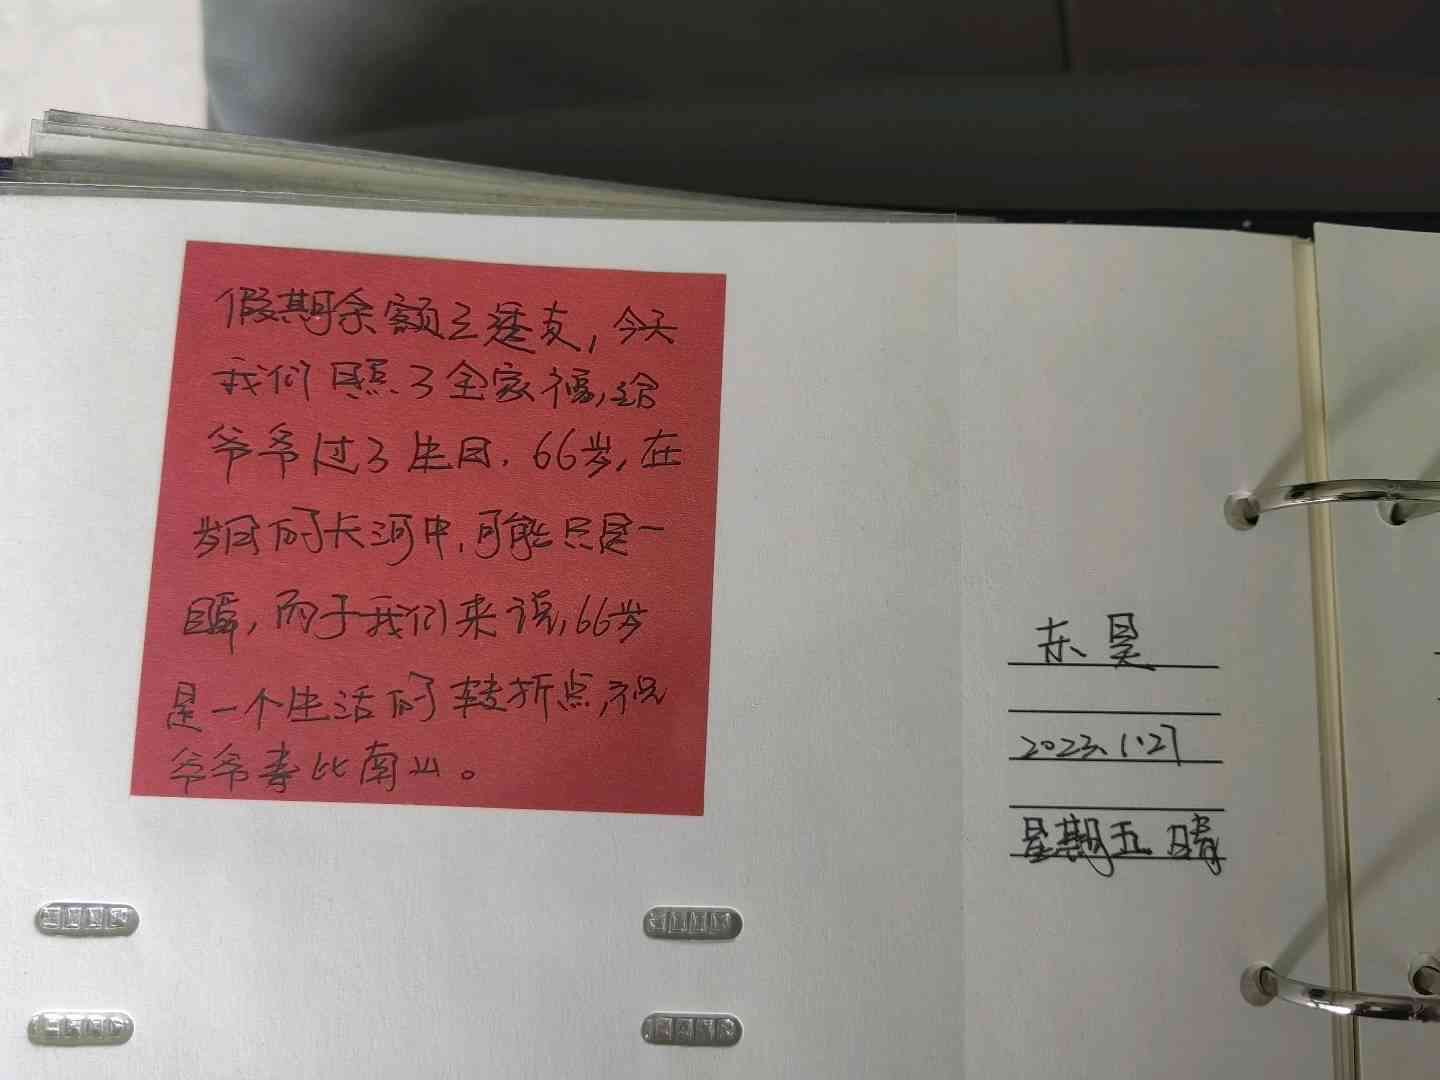 假期余额已透支,今天
我们照了全家福,给
爷爷过了生日.66岁,在
岁月的长河中,可能只是一
瞬,而于我们来说,66岁
是一个生活的转折点,祝
爷爷寿比南山。
东昊
2023.1.27
星期五 晴